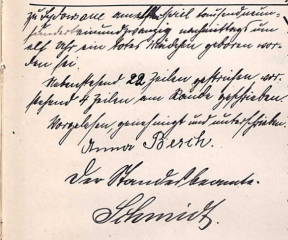 zu Sydowsaue am elften April tausendneun-
hunderteinundzwanzig nachmittags um
elf Uhr ein totes Mädchen geboren wor-
den sei.
Nebenstehend 22 Zeilen gestrichen, vor-
stehend 4 Zeilen am Rande geschrieben.
Vorgelesen, genehmigt und unterschrieben.
Anna Besch.
Der Standesbeamte.
Schmidt.